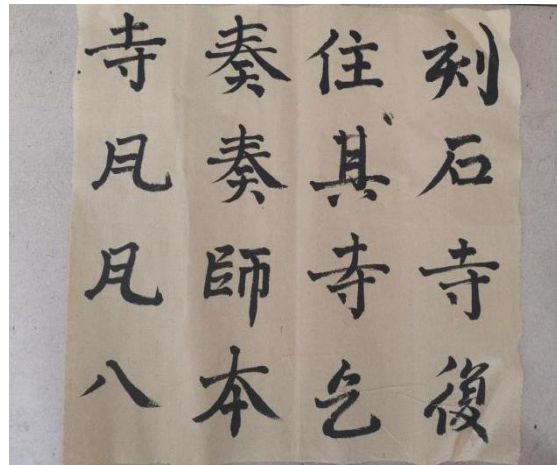 刻石寺復
住其寺乞
奏奏師本
寺凡凡八